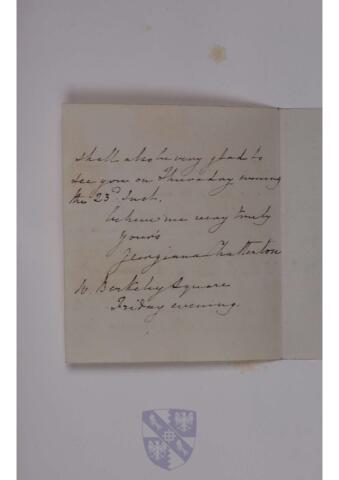 shall also be very glad to
see you on Thursday evening
the 23d Inst.
believe me very truly
yours
Georgiana Chatterton
Berkeley Square
Friday evening